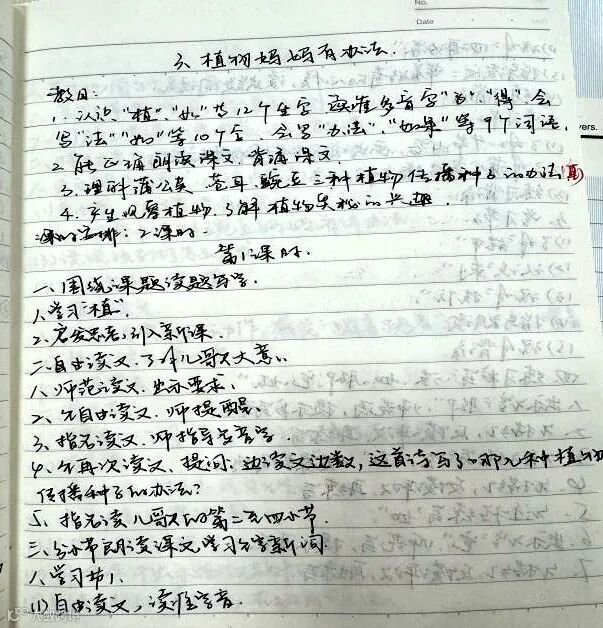 No.
Date
3、植物妈妈有办法.
教目:
1. 认识"植"、"如"等12个生字 读准多音字"为"、"得",会
写"法""如"等10个字,会写"办法"、"如果"等9个词语,
2. 能正确朗读课文,背诵课文.
3. 理解蒲公英、苍耳、豌豆三种植物传播种子的办法
4. 产生观察植物、了解植物奥秘的兴趣.
课时安排:2课时.
第1课时.
一、围绕课题读题写字.
1、学习"植".
2、启发思考,引入新课.
二、自由读文,了解儿歌大意.
1、师范读文,出示要求.
2、生自由读文,师提醒.
3、指名读文,师指导字音.
4、生再次读文、提问:边读文边数,这首诗写了哪几种植物
传播种子的办法?
5、指名读儿歌的第二至四小节.
三、分小节朗读课文,学习生字新词.
1、学习节1.
(1)自由读文,读准字音.